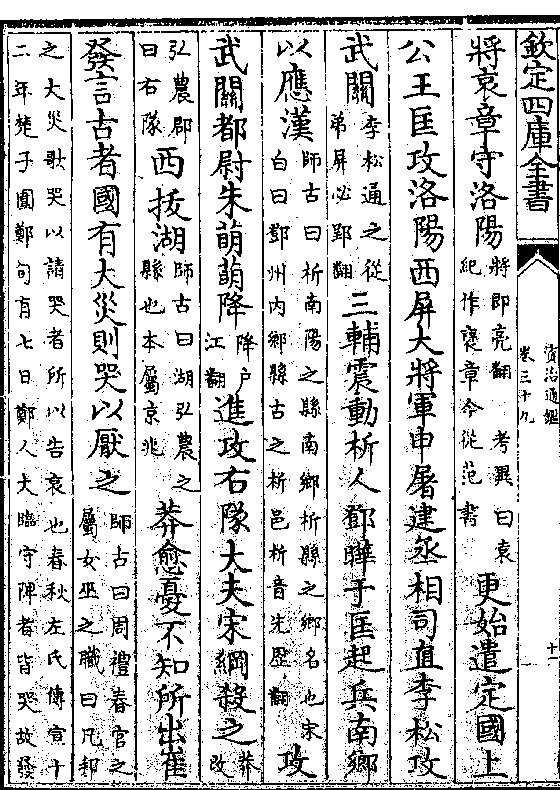 欽定四庫全書
資治通鑑
卷三十九
十一
將哀章守洛陽將即亮翻考異曰袁紀作襃章今從范書更始遣定國上
公王匡攻洛陽西屏大將軍申屠建丞相司直李松攻
武關李松通之從弟屏必郢翻三輔震動析人鄧曄于匡起兵南鄉
以應漢師古曰析南陽之縣南鄉析縣之鄉名也宋白曰鄧州内鄉縣古之析邑析音先歴翻攻
武關都尉朱萌萌降降户江翻進攻右隊大夫宋綱殺之莽改
弘農郡曰右隊西拔湖師古曰湖弘農之縣也本屬京兆莽愈憂不知所出崔
發言古者國有大災則哭以厭之師古曰周禮春官之屬女巫之職曰凡邦
之大災歌哭以請哭者所以告哀也春秋左氏傳宣十二年楚子圍鄭旬有七日鄭人大臨守陴者皆哭故發